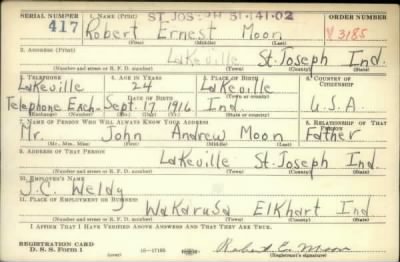 SERIAL NUMBER 1. NAME (Print) ST. JOSEPH 51-141-02 ORDER NUMBER
417 Robert Ernest Moon V 3185
(First) (Middle) (Last)
2. ADDRESS (Print)
Lakeville St. Joseph Ind.
(Number and street or R. F. D. number) (Town) (County) (State)
3. TELEPHONE 4. AGE IN YEARS 5. PLACE OF BIRTH 6. COUNTRY OF CITIZENSHIP
Lakeville 24 Lakeville
DATE OF BIRTH (Town or county)
Telephone Exch. Sept. 17 1916 Ind. U.S.A.
(Exchange) (Number) (Mo.) (Day) (Yr.) (State or country)
7. NAME OF PERSON WHO WILL ALWAYS KNOW YOUR ADDRESS 8. RELATIONSHIP OF THAT PERSON
Mr. John Andrew Moon Father
(Mr., Mrs., Miss) (First) (Middle) (Last)
9. ADDRESS OF THAT PERSON
Lakeville St. Joseph Ind.
(Number and street or R. F. D. number) (Town) (County) (State)
10. EMPLOYER'S NAME
J.C. Weldy
11. PLACE OF EMPLOYMENT OR BUSINESS
Wakarusa Elkhart Ind
(Number and street or R. F. D. number) (Town) (County) (State)
I AFFIRM THAT I HAVE VERIFIED ABOVE ANSWERS AND THAT THEY ARE TRUE.
REGISTRATION CARD
D. S. S. Form 1 16—17105 Robert E. Moon
(Registrant's signature)